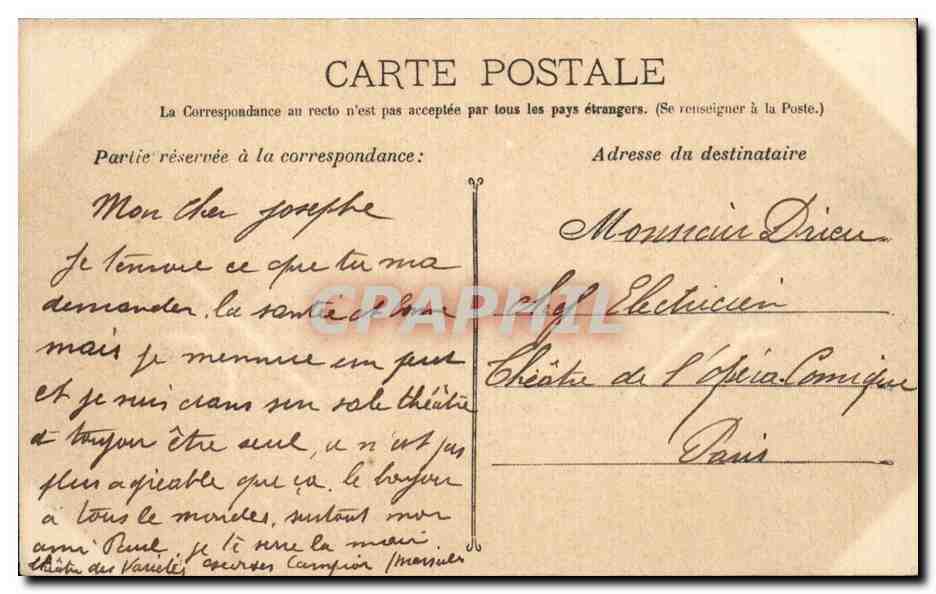 CARTE POSTALE
La Correspondance au recto n'est pas acceptée par tous les pays étrangers. (Se renseigner à la Poste.)
Partie réservée à la correspondance:
Mon cher Josephe
Je t'envoie ce que tu ma
demander, la santée et bonne
mais je mennuie un peut
et je suis dans son sale théâtre
et toujour être seul, ce n'est pas
plus agréable que ça. le bonjour
à tous le mondes, surtout mon
ami Paul, je te serre la main
théâtre des Variétés Georges Campion Marseille
Adresse du destinataire
Monsieur Drieu
chef Electricien
Théâtre de l'Opéra-Comique
Paris
CPAPHIL